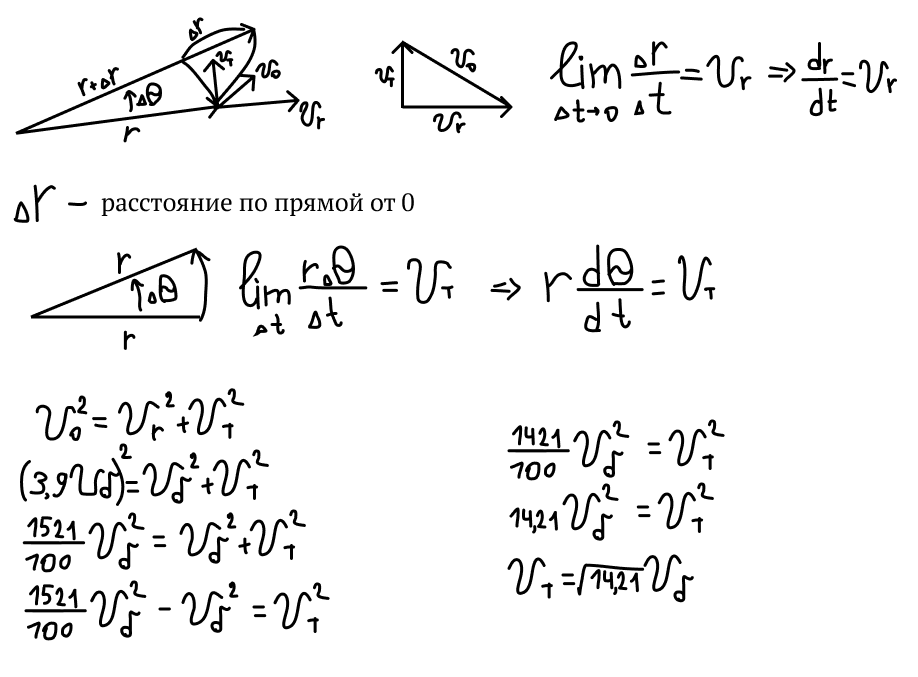 Δr
r+Δr
v_τ
v_0
Δθ
r
v_r
v_τ
v_0
v_r
lim Δt→0 Δr/Δt = v_r ⇒ dr/dt = v_r
Δr – расстояние по прямой от 0
r
Δθ
r
lim Δt rΔθ/Δt = v_τ ⇒ r dθ/dt = v_τ
v_0² = v_r² + v_τ²
(3,9v_δ)² = v_δ² + v_τ²
1521/100 v_δ² = v_δ² + v_τ²
1521/100 v_δ² – v_δ² = v_τ²
1421/100 v_δ² = v_τ²
14,21 v_δ² = v_τ²
v_τ = √14,21 v_δ